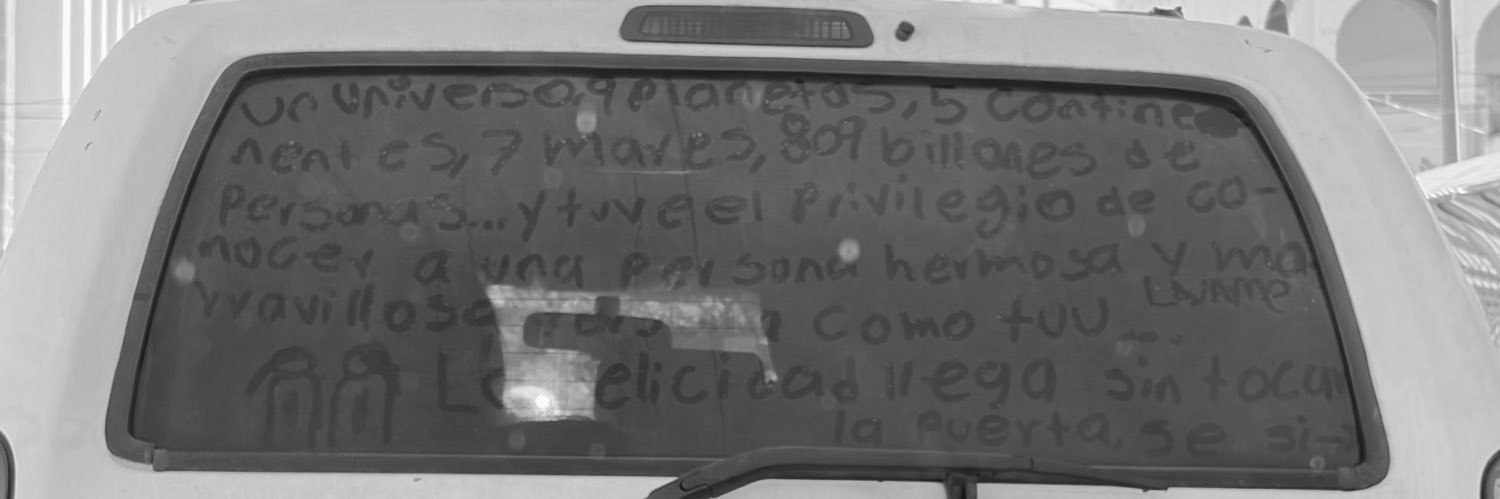 un universo, 9 planetas, 5 contine
nentes, 7 mares, 809 billones de
personas... y tuve el privilegio de co-
nocer a una persona hermosa y ma
rravillosa persona como tuu ...
LAVAME
La felicidad llega sin tocar
la puerta, se